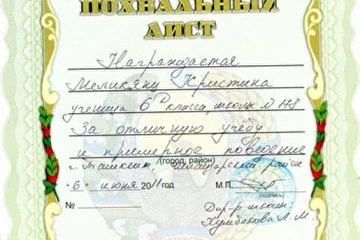 ПОХВАЛЬНЫЙ
ЛИСТ
Награждается
Меликянц Кристина
ученица 6 класса, школы №
За отличную учёбу
и примерное поведение
г. Ташкент, район
(город, район)
"6" июня 2011 год
М.П.
(подпись)
№
Дир-р школы:
Л.М.